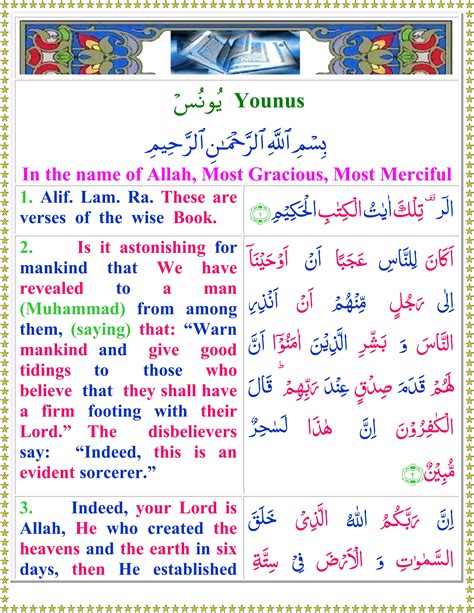 يُونُسْ Younus
بِسْمِ اللَّهِ الرَّحْمَٰنِ الرَّحِيمِ
In the name of Allah, Most Gracious, Most Merciful
1. Alif. Lam. Ra. These are
verses of the wise Book.
الٓرٰ ۚ تِلْكَ اٰيٰتُ الْكِتٰبِ الْحَكِيْمِ ۝۱
2. Is it astonishing for
mankind that We have
revealed to a man
(Muhammad) from among
them, (saying) that: “Warn
mankind and give good
tidings to those who
believe that they shall have
a firm footing with their
Lord.” The disbelievers
say: “Indeed, this is an
evident sorcerer.”
اَكَانَ لِلنَّاسِ عَجَبًا اَنْ اَوْحَيْنَاۤ
اِلٰى رَجُلٍ مِّنْهُمْ اَنْ اَنْذِرِ
النَّاسَ وَ بَشِّرِ الَّذِيْنَ اٰمَنُوْۤا اَنَّ
لَهُمْ قَدَمَ صِدْقٍ عِنْدَ رَبِّهِمْ ؕ قَالَ
الْكٰفِرُوْنَ اِنَّ هٰذَا لَسٰحِرٌ
مُّبِيْنٌ ۝۲
3. Indeed, your Lord is
Allah, He who created the
heavens and the earth in six
days, then He established
اِنَّ رَبَّكُمُ اللّٰهُ الَّذِيْ خَلَقَ
السَّمٰوٰتِ وَ الْاَرْضَ فِيْ سِتَّةِ